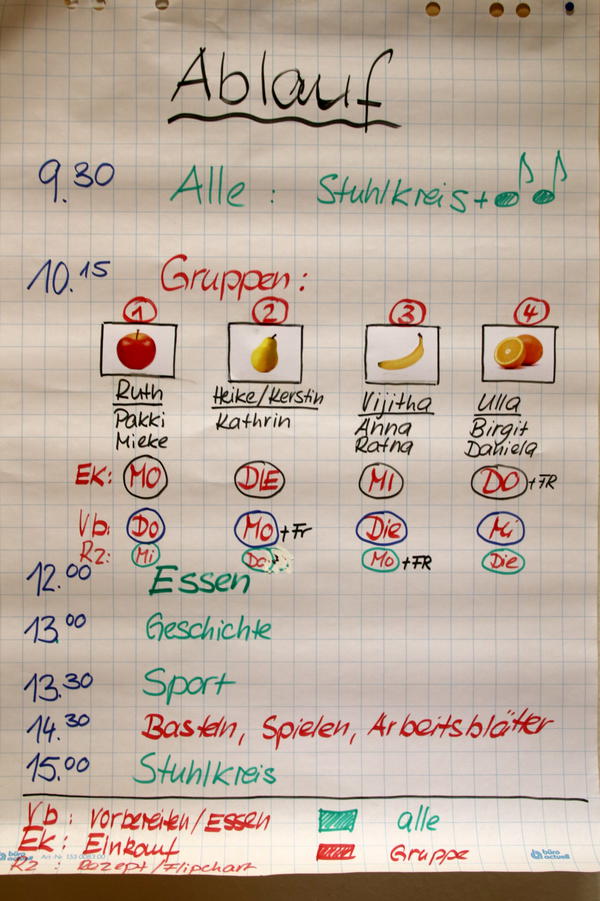 Ablauf
9.30 Alle: Stuhlkreis +
10.15 Gruppen:
1 2 3 4
Ruth Heike/Kerstin Vijitha Ulla
Pakki Kathrin Anna Birgit
Mieke Ratna Daniela
EK: MO DIE MI DO +FR
Vb: Do Mo +Fr Die Mi
RZ: Mi Do Mo +FR Die
12.00 Essen
13.00 Geschichte
13.30 Sport
14.30 Basteln, Spielen, Arbeitsblätter
15.00 Stuhlkreis
Vb: Vorbereiten/Essen alle
Ek: Einkauf Gruppe
RZ: Rezept/Flipchart
büro actuell Art.-Nr. 153 0083 00 büro actuell